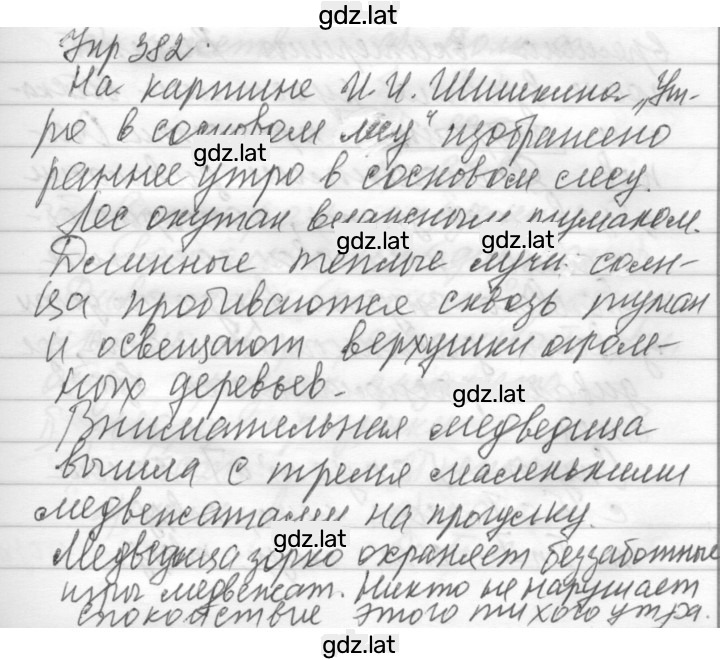 gdz.lat
Упр 382.
На картине И.И. Шишкина „Ут-
ро в сосновом лесу" изображено
gdz.lat
раннее утро в сосновом лесу.
Лес окутан влажным туманом.
gdz.lat gdz.lat
Длинные теплые лучи солн-
ца пробиваются сквозь туман
и освещают верхушки огром-
ных деревьев.
gdz.lat
Внимательная медведица
вышла с тремя маленькими
медвежатами на прогулку.
gdz.lat
Медведица зорко охраняет беззаботные
игры медвежат. Никто не нарушает
спокойствие этого тихого утра.
gdz.lat